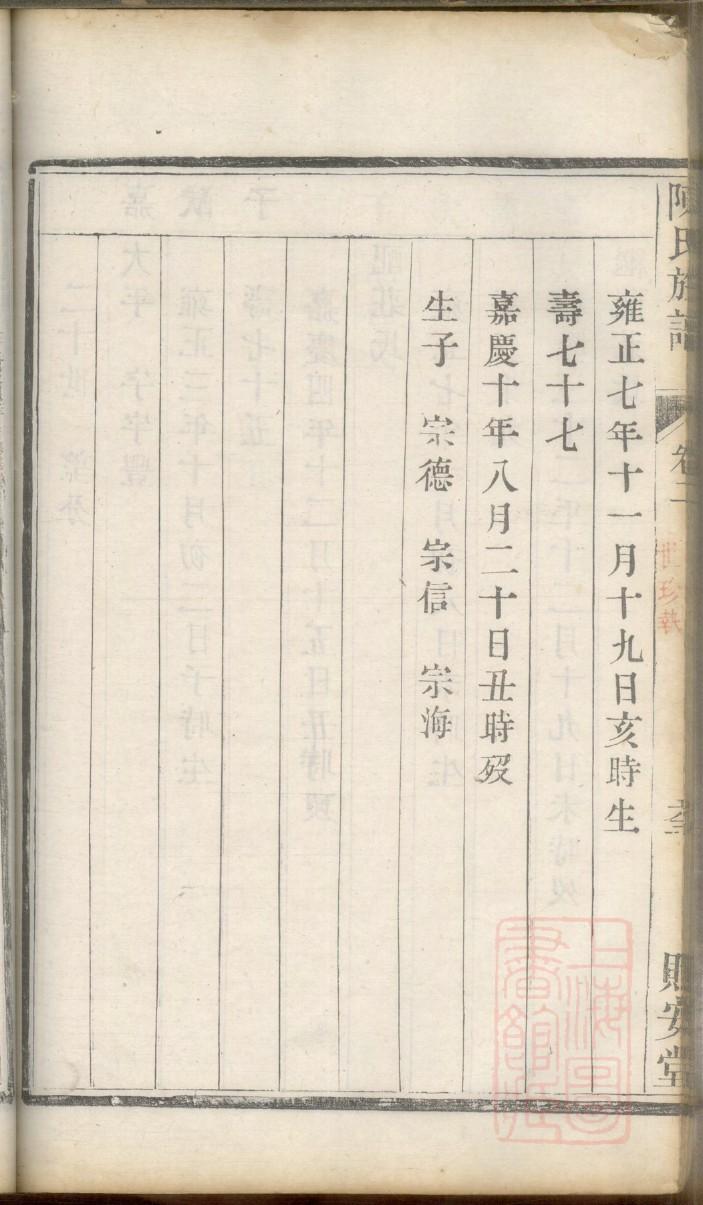 陳氏族譜
卷二
貽安堂
雍正七年十一月十九日亥時生
壽七十七
嘉慶十年八月二十日丑時歿
生子 宗德 宗信 宗海
上海圖書館藏